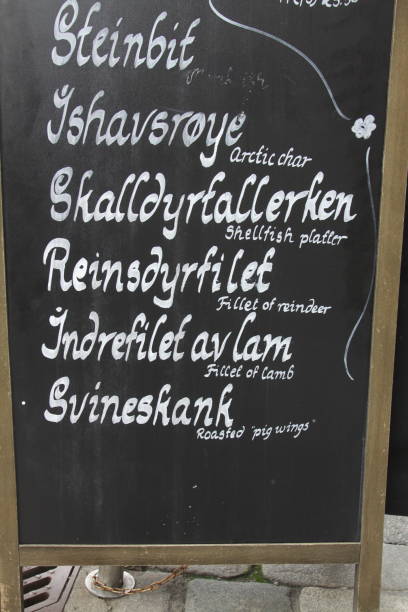 Steinbit
Ishavsrøye
Arctic char
Skalldyrtallerken
Shellfish platter
Reinsdyrfilet
Fillet of reindeer
Indrefilet av lam
Fillet of lamb
Svineskank
Roasted "pig wings"